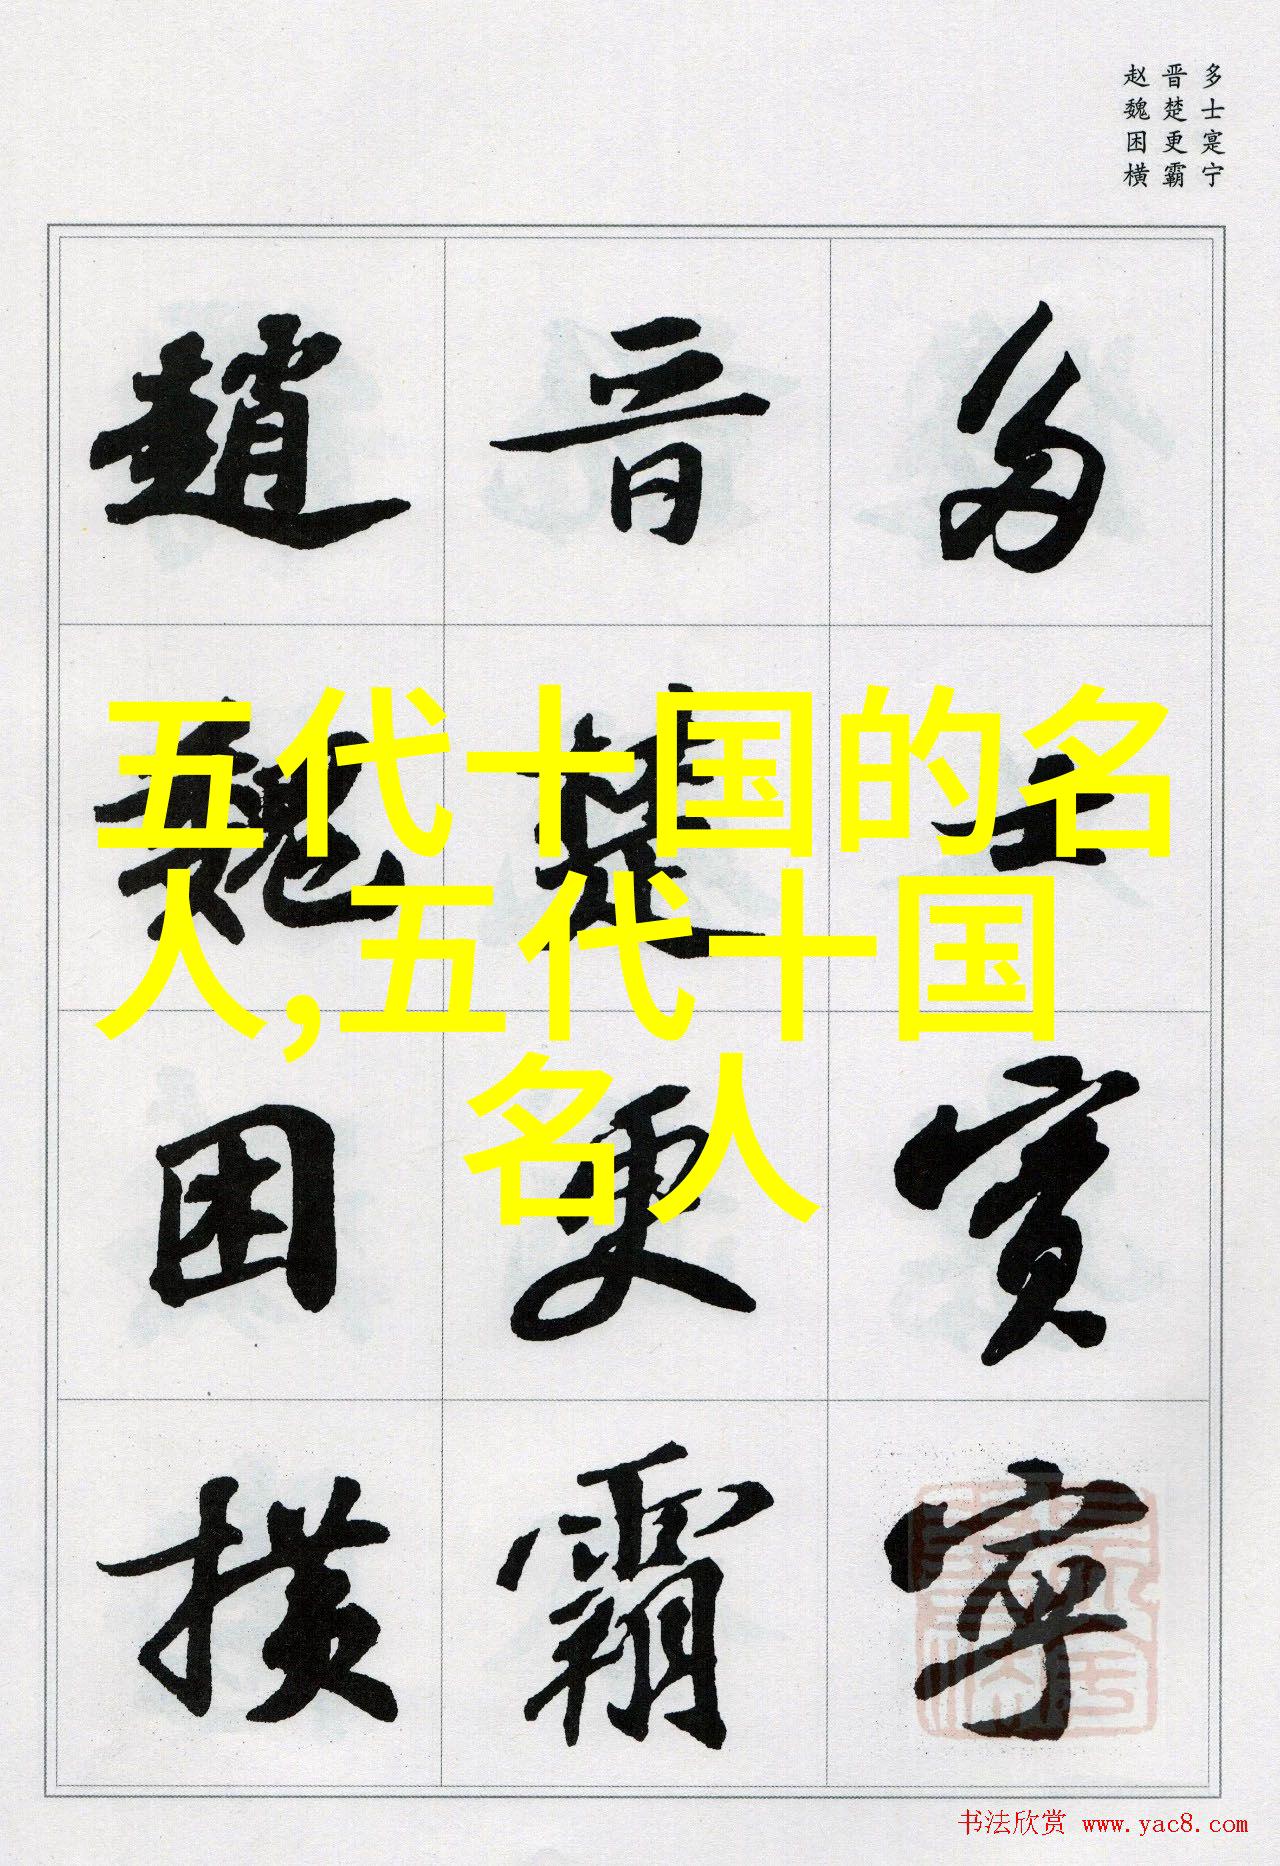 多士寔宁
晋楚更霸
赵魏困横
多士寔寧
晉楚更霸
趙魏困横
五代十国的名
人,五代十国
名人
书法欣赏 www.yac8.com